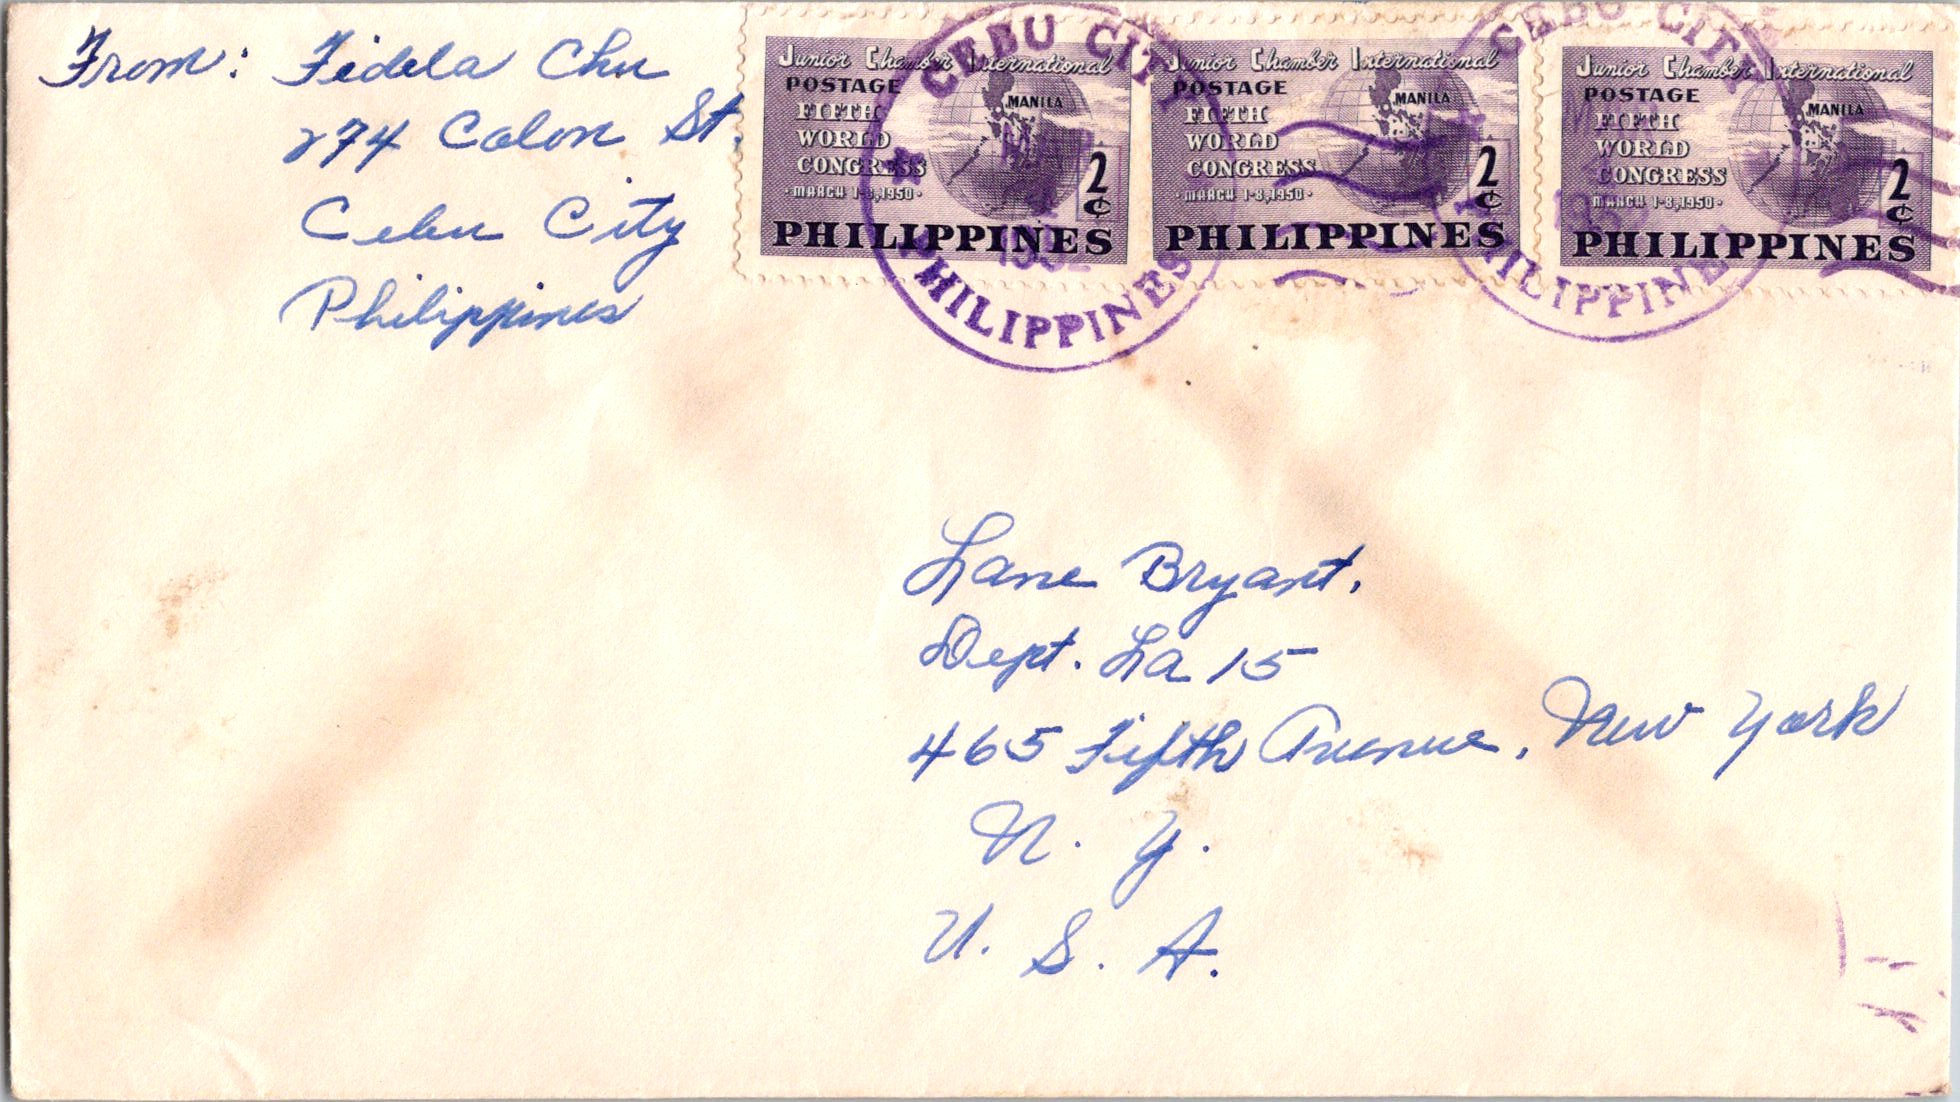 From: Fidela Chu
274 Colon St.
Cebu City
Philippines
Junior Chamber International
POSTAGE
FIFTH
WORLD
CONGRESS
·MARCH 1-8, 1950·
MANILA
2
¢
PHILIPPINES
Junior Chamber International
POSTAGE
FIFTH
WORLD
CONGRESS
·MARCH 1-8, 1950·
MANILA
2
¢
PHILIPPINES
Junior Chamber International
POSTAGE
FIFTH
WORLD
CONGRESS
·MARCH 1-8, 1950·
MANILA
2
¢
PHILIPPINES
CEBU CITY
PHILIPPINES
CEBU CITY
PHILIPPINES
Lane Bryant,
Dept. La 15
465 Fifth Avenue, New York
N. Y.
U. S. A.